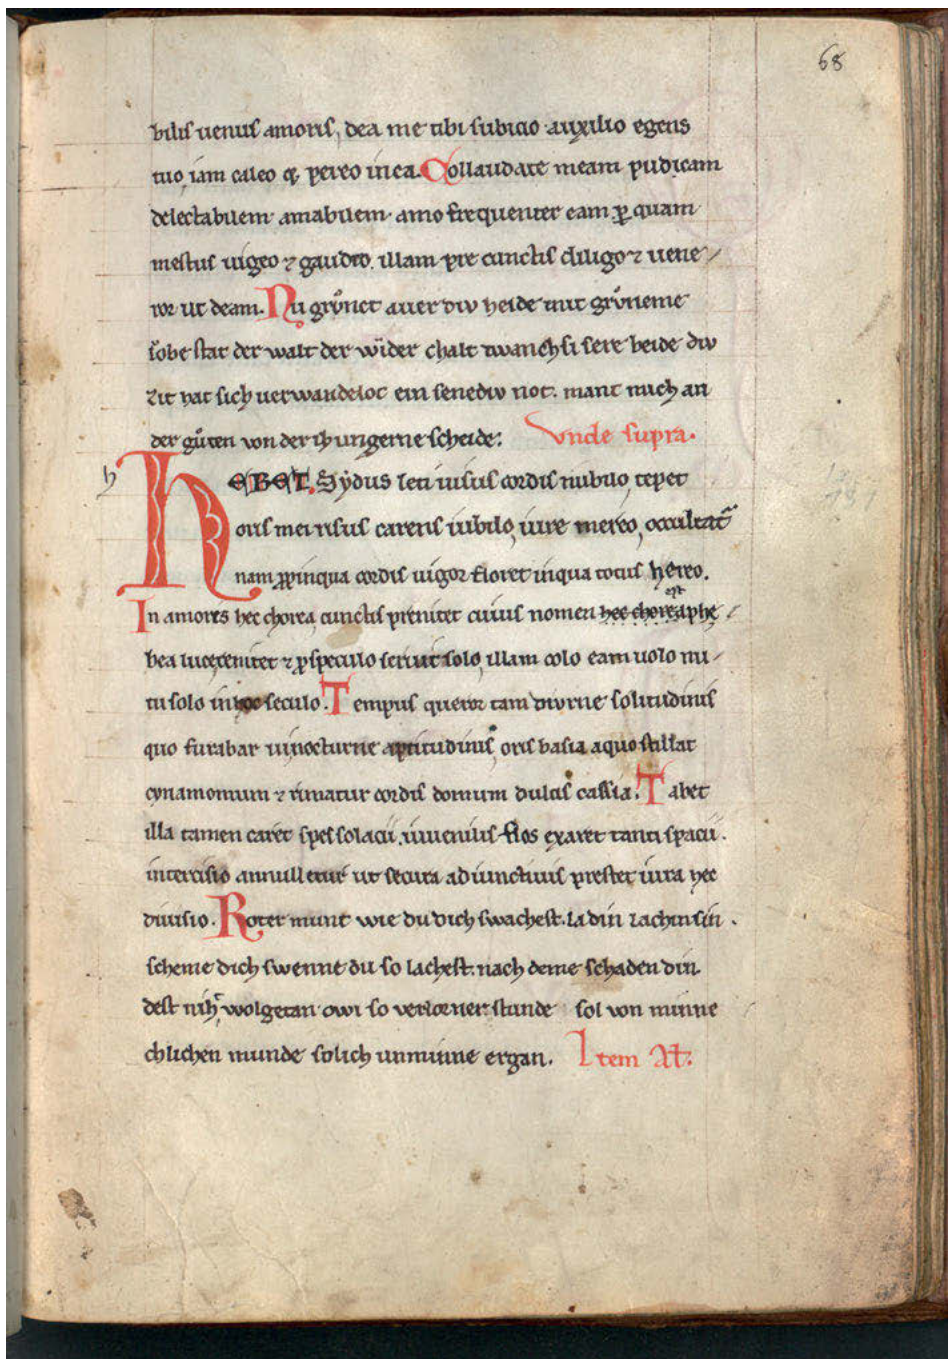 68
bilis uenus amoris, dea me tibi subicio auxilio egens
tuo, iam caleo q; pereo inea. Collaudate meam pudicam
delectabilem amabilem amo frequenter eam ꝓ quam
mestus uigeo ⁊ gaudeo. illam pre cunctis diligo ⁊ uene/
ror ut deam. Nu grůnet auer div heide mit grůneme
lobe stat der walt der wider chalt twanch si sere beide div
zit hat sich uerwandelot ein senediv not. mant mich an
der gůten von der ih ungerne scheide: Vnde supra.
h HEBET. Sydus leti uisus cordis nubilo, tepet
oris mei risus carens iubilo, iure mereo, occultat͛
nam ꝓpinqua cordis uigor floret inqua totus hereo.
In amores hec chorea cunctis prenitet cuius nomen hec chorea est aphe/
bea lucet renitet ⁊ ꝓ speculo seruit solo, illam colo eam uolo nu/
tu solo in hoc seculo. Tempus queror tam diurne solitudinis
quo furabar ui nocturne aptitudinis oris basia aquo stillat
cynamomum ⁊ rimatur cordis domum dulcis cassia. Tabet
illa tamen caret spes solacii. iuuenilis flos exaret tanti spacii.
intercisio annulletur ut secura adiunctiuis prestet iura hec
diuisio. Roter munt wie du dich swachest. la din lachin sin.
scheme dich swenne du so lachest. nach deme schaden din
dest niht wolgetan owi so verlorner stunde sol von minne
chlichen munde solich unminne ergan. Item Al.